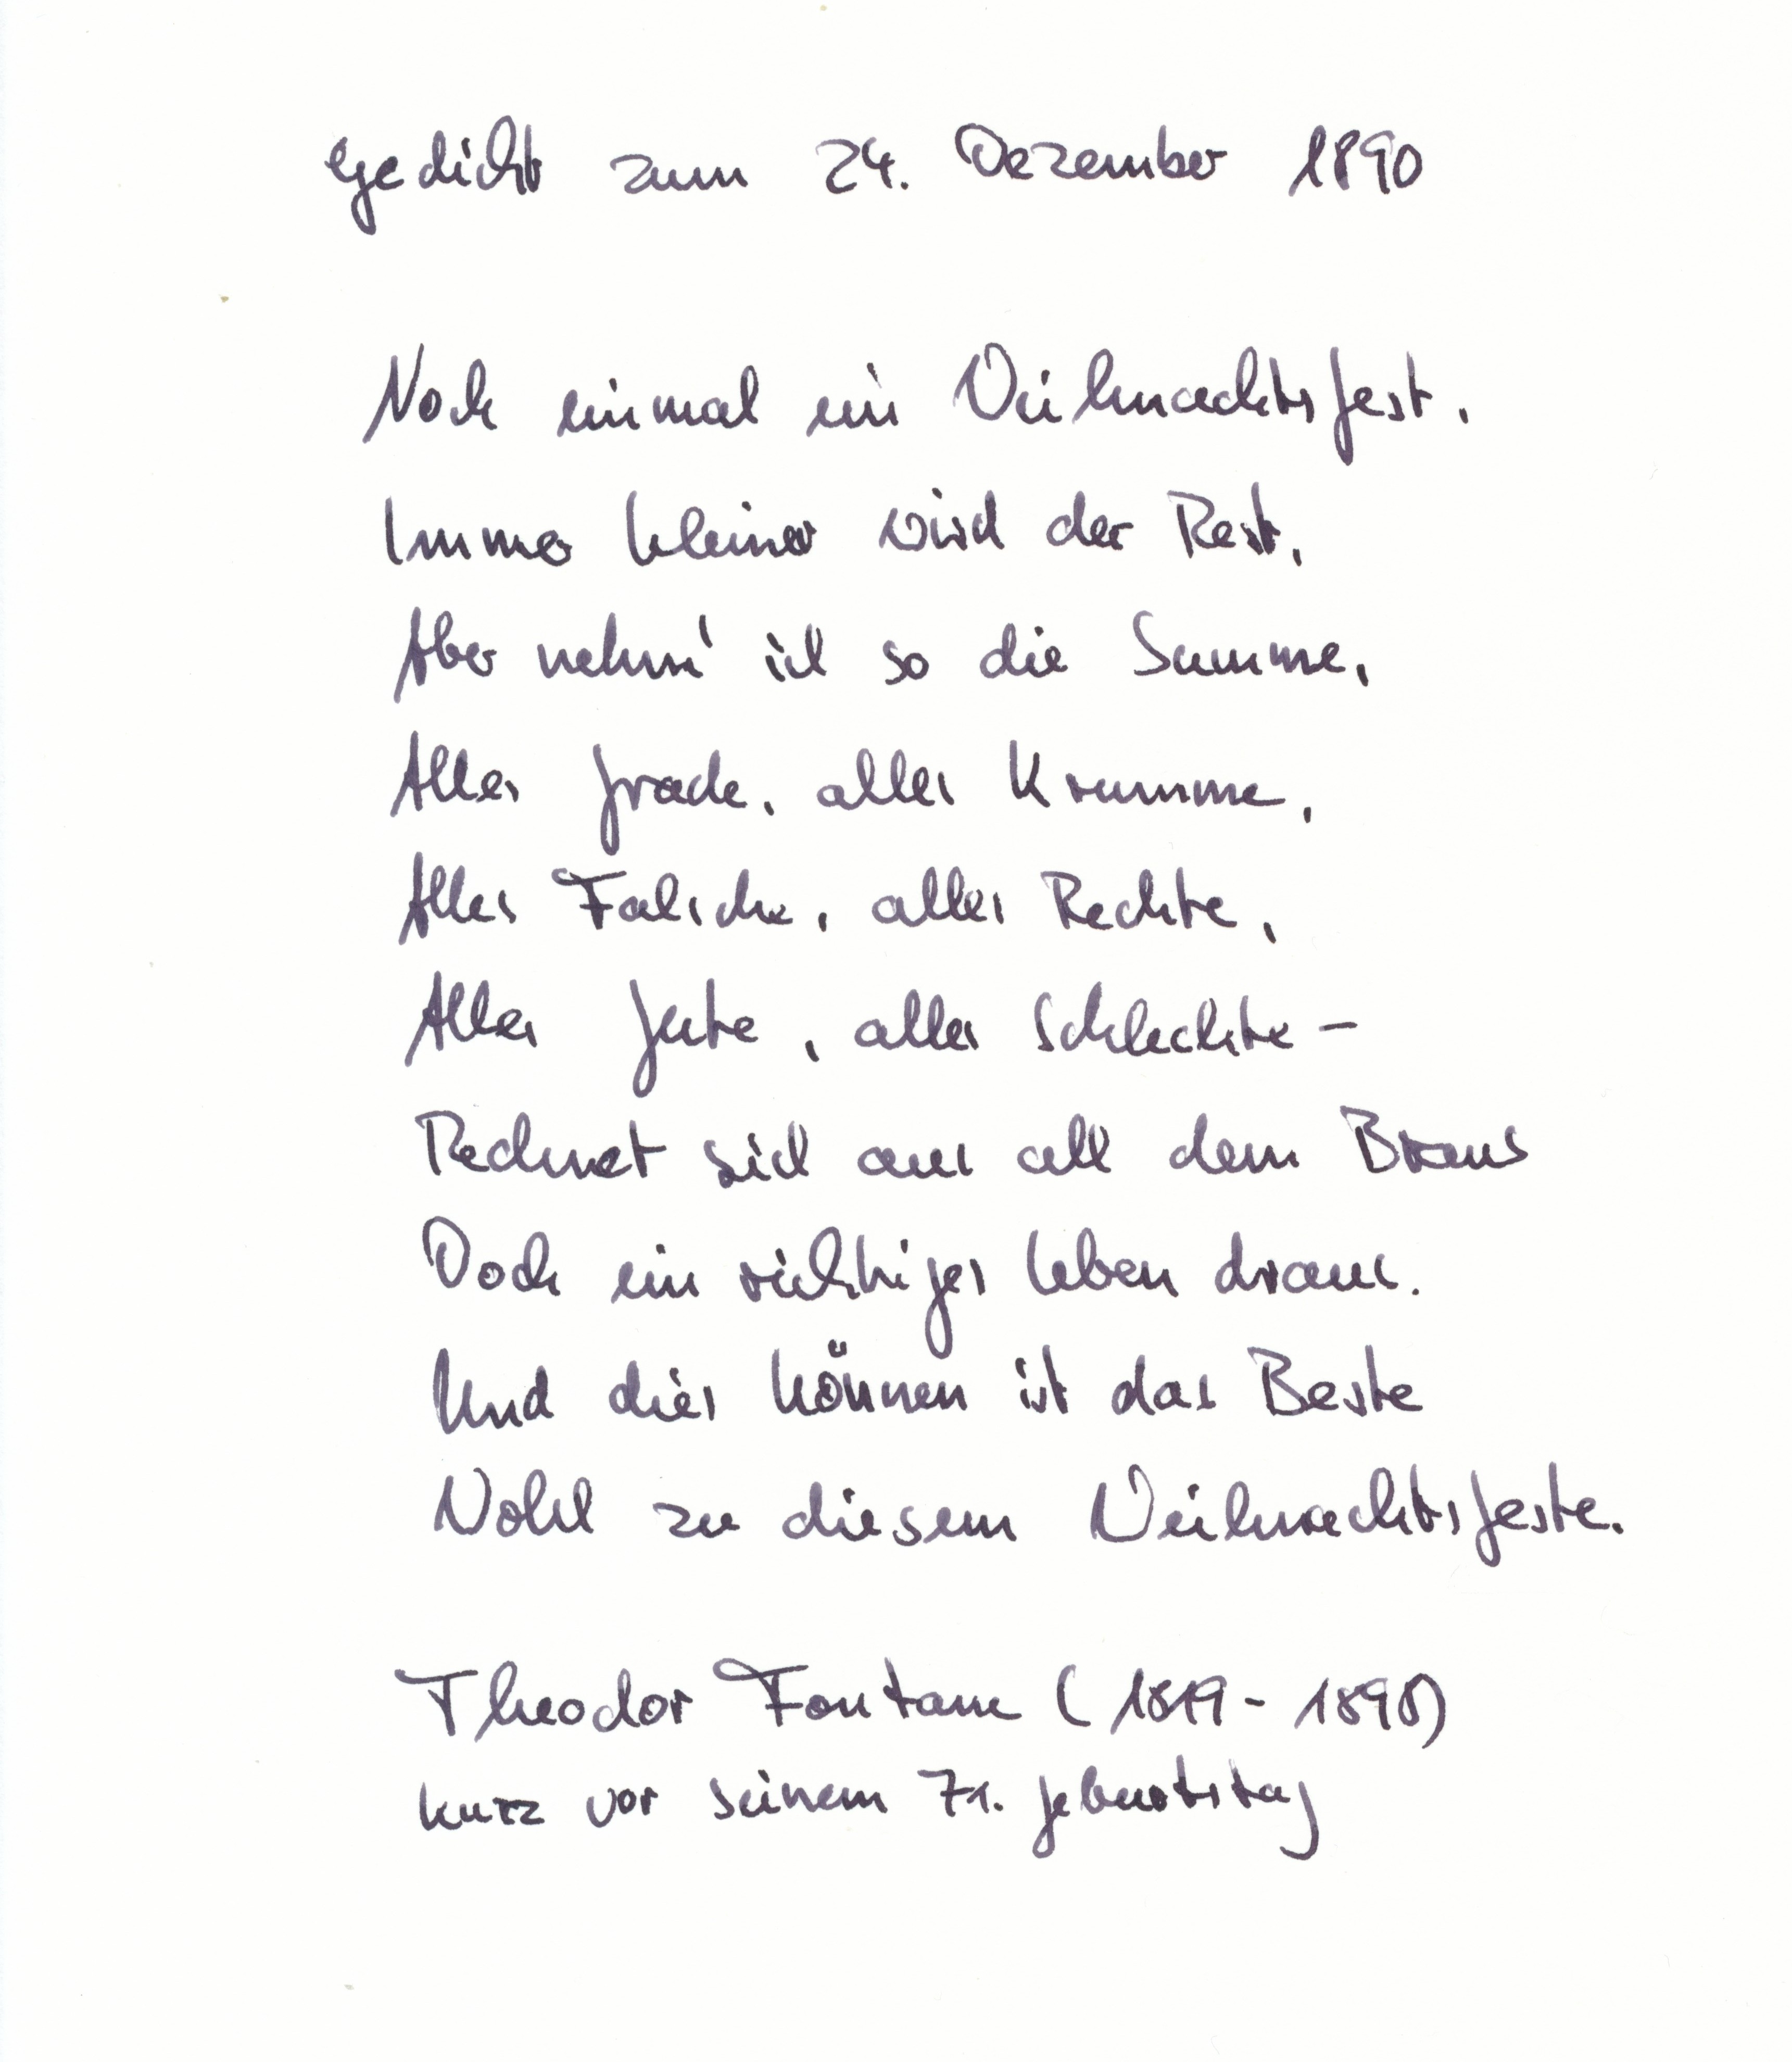 Gedicht zum 24. Dezember 1890
Noch einmal ein Weihnachtsfest,
Immer kleiner wird der Rest,
Aber nehm' ich so die Summe,
Alles Grade, alles Krumme,
Alles Falsche, alles Rechte,
Alles Gute, alles Schlechte –
Rechnet sich aus all dem Braus
Doch ein richtiges Leben draus.
Und dies können ist das Beste
Wohl zu diesem Weihnachtsfeste.
Theodor Fontane (1819 - 1898)
kurz vor seinem 71. Geburtstag